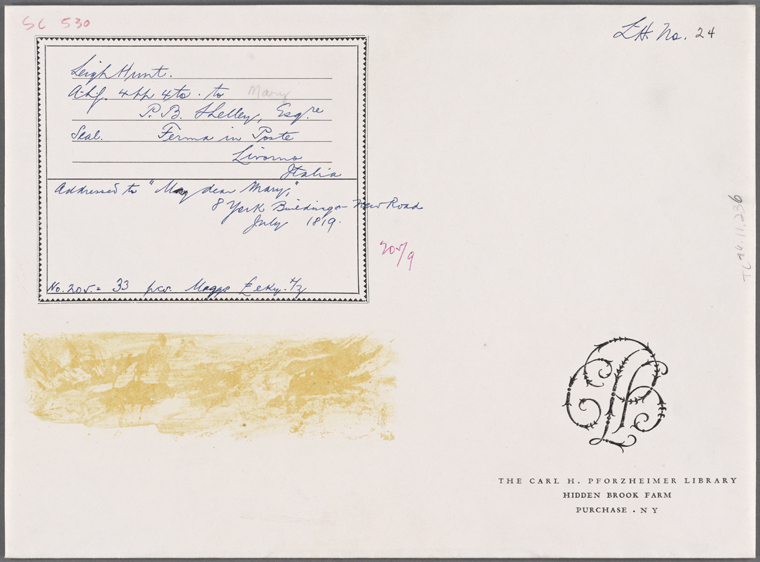 SC 530
LH. No. 24
Leigh Hunt.
4pp 4to. to Mary
P. B. Shelley, Esqre
Seal. Ferma in Poste
Livorno
Italia
Addressed to "My dear Mary,"
8 York Buildings New Road
July 1819.
205/9
No. 205 = 33 pcs. Maggs
THE CARL H. PFORZHEIMER LIBRARY
HIDDEN BROOK FARM
PURCHASE . NY